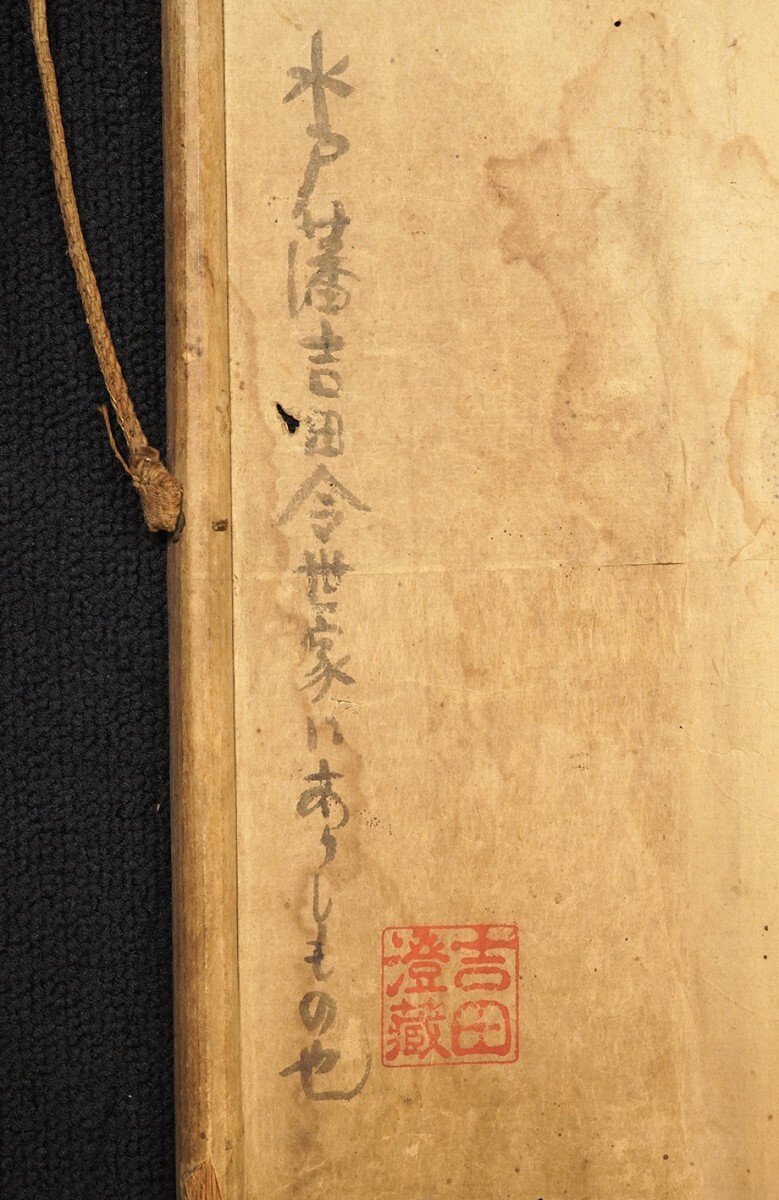 水戸藩吉田令世家にありしもの也
吉田
澄蔵